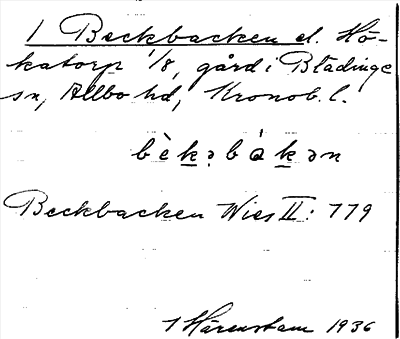 1 Beckbacken el. Hö-
katorp 1/8, gård i Blädinge
sn, Allbo hd, Kronob. l.
bèk̲əbák̲ən
Beckbacken Wies II: 779
1 Härenstam 1936